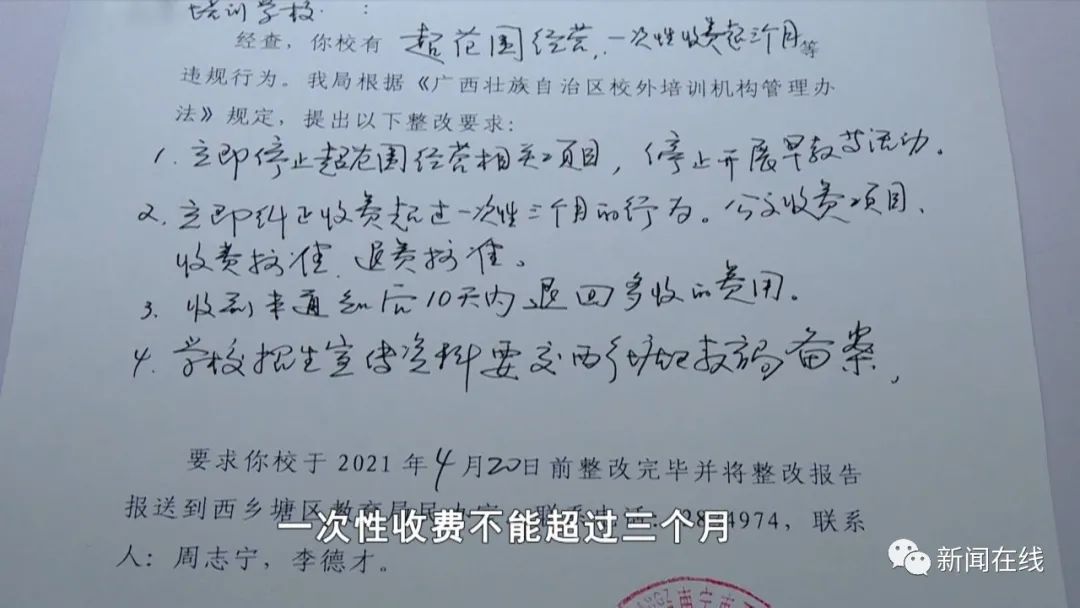 培训学校:
经查，你校有 超范围经营、一次性收费超三个月等
违规行为。我局根据《广西壮族自治区校外培训机构管理办
法》规定，提出以下整改要求：
1. 立即停止超范围经营相关项目，停止开展早教等活动。
2. 立即纠正收费超过一次性三个月的行为。公交收费项目、
收费标准、退费标准。
3. 收到本通知后10天内退回多收的费用。
4. 学校招生宣传资料要交西乡塘教育局备案，
要求你校于2021年4月20日前整改完毕并将整改报告
报送到西乡塘区教育局民办
4974，联系
人：周志宁，李德才。
一次性收费不能超过三个月
新闻在线
南宁市